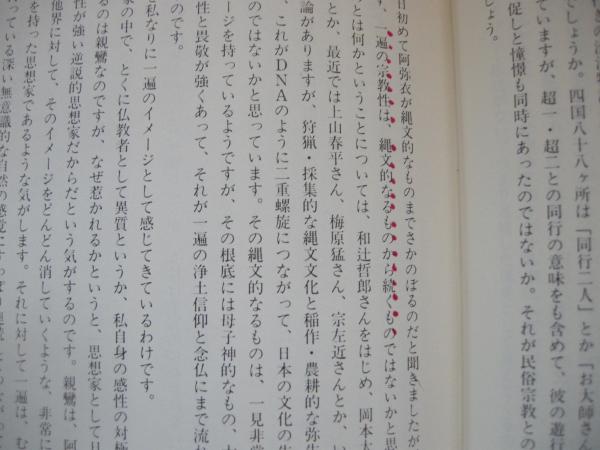 きの
でしょうか。四国八十八ヶ所は「同行二人」とか「お大師さん
ていますが、超一・超二との同行の意味をも含めて、彼の遊行
促しと憧憬も同時にあったのではないか。それが民俗宗教との
しょう。
日初めて阿弥衣が縄文的なものまでさかのぼるのだと聞きましたが
一遍の宗教性は、縄文的なるものから続くものではないかと思
とは何かということについては、和辻哲郎さんをはじめ、岡本太
とか、最近では上山春平さん、梅原猛さん、宗左近さんとか、い
論がありますが、狩猟・採集的な縄文文化と稲作・農耕的な弥生
、これがDNAのように二重螺旋につながって、日本の文化の生
のではないかと思っています。その縄文的なるものは、一見非常
ージを持っているようですが、その根底には母子神的なもの、大
性と畏敬が強くあって、それが一遍の浄土信仰と念仏にまで流れ
のです。
を私なりに一遍のイメージとして感じてきているわけです。
家の中で、とくに仏教者として異質というか、私自身の感性の対極
るのは親鸞なのですが、なぜ惹かれるかというと、思想家として日
性が強い逆説的思想家だからだという気がするのです。親鸞は、阿
他界に対して、そのイメージをどんどん消していくような、非常に
を持った思想家であるような気がします。それに対して一遍は、む
っている深い無意識的な自然の感覚にすっぽり